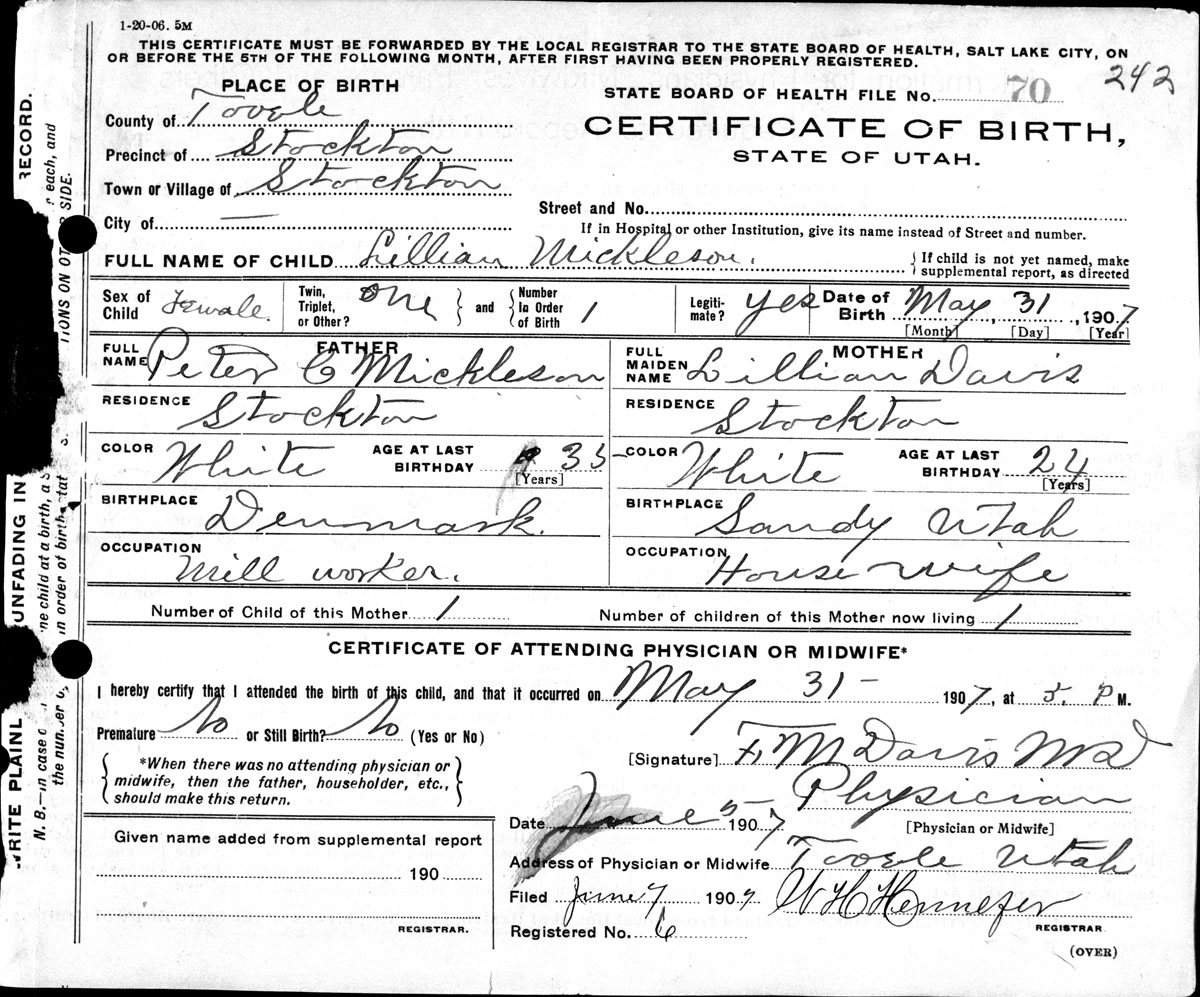 1-20-06. 5M
THIS CERTIFICATE MUST BE FORWARDED BY THE LOCAL REGISTRAR TO THE STATE BOARD OF HEALTH, SALT LAKE CITY, ON
OR BEFORE THE 5TH OF THE FOLLOWING MONTH, AFTER FIRST HAVING BEEN PROPERLY REGISTERED.
242
PLACE OF BIRTH
STATE BOARD OF HEALTH FILE No. 70
County of Tooele
CERTIFICATE OF BIRTH,
Precinct of Stockton
STATE OF UTAH.
Town or Village of Stockton
Street and No.
City of —
If in Hospital or other Institution, give its name instead of Street and number.
FULL NAME OF CHILD Lillian Mickleson.
If child is not yet named, make
supplemental report, as directed
Sex of Child Female.
Twin, Triplet, or Other? one and Number In Order of Birth 1
Legitimate? yes
Date of Birth May 31, 1907
[Month] [Day] [Year]
FATHER
FULL NAME Peter C Mickleson
RESIDENCE Stockton
COLOR White AGE AT LAST BIRTHDAY 35
[Years]
BIRTHPLACE Denmark.
OCCUPATION Mill worker.
MOTHER
FULL MAIDEN NAME Lillian Davis
RESIDENCE Stockton
COLOR White AGE AT LAST BIRTHDAY 24
[Years]
BIRTHPLACE Sandy Utah
OCCUPATION House wife
Number of Child of this Mother 1 Number of children of this Mother now living 1
CERTIFICATE OF ATTENDING PHYSICIAN OR MIDWIFE*
I hereby certify that I attended the birth of this child, and that it occurred on May 31- 1907, at 5. P M.
Premature No or Still Birth? No (Yes or No)
*When there was no attending physician or
midwife, then the father, householder, etc.,
should make this return.
[Signature] F. M Davis MD
Physician
[Physician or Midwife]
Date June 5- 1907
Address of Physician or Midwife Tooele Utah
Filed June 7 1907 W H Hennefer
REGISTRAR
Registered No. 6
(OVER)
Given name added from supplemental report
190
REGISTRAR.
RECORD.
UNFADING IN
WRITE PLAINL
each, and
SIDE.
TIONS ON OT
ne child at a birth, a S
in order of birth stat
N. B.—in case o
the number o